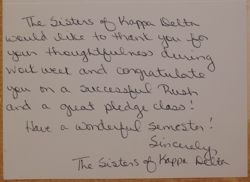 The Sisters of Kappa Delta
would like to thank you for
your thoughtfulness during
work week and congratulate
you on a successful Rush
and a great pledge class!
Have a wonderful semester!
Sincerely,
The Sisters of Kappa Delta